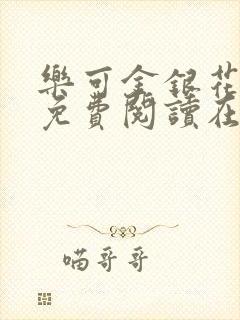 樂可金銀花
免費閱讀在
喵哥哥